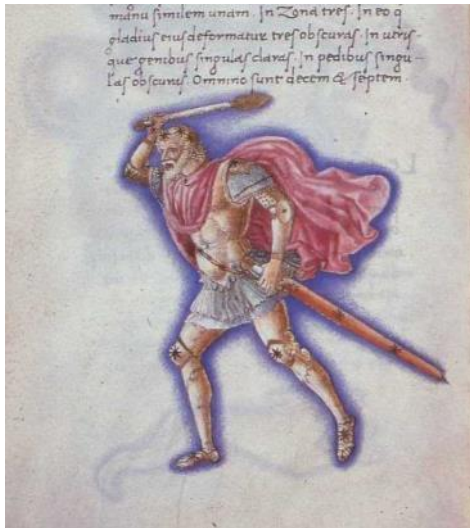 manu similem unam. In Zona tres. In eo q
gladius eius deformatur tres obscuras. In utris-
que genibus singulas claras. In pedibus singu-
las obscuras. Omnino sunt decem & septem.